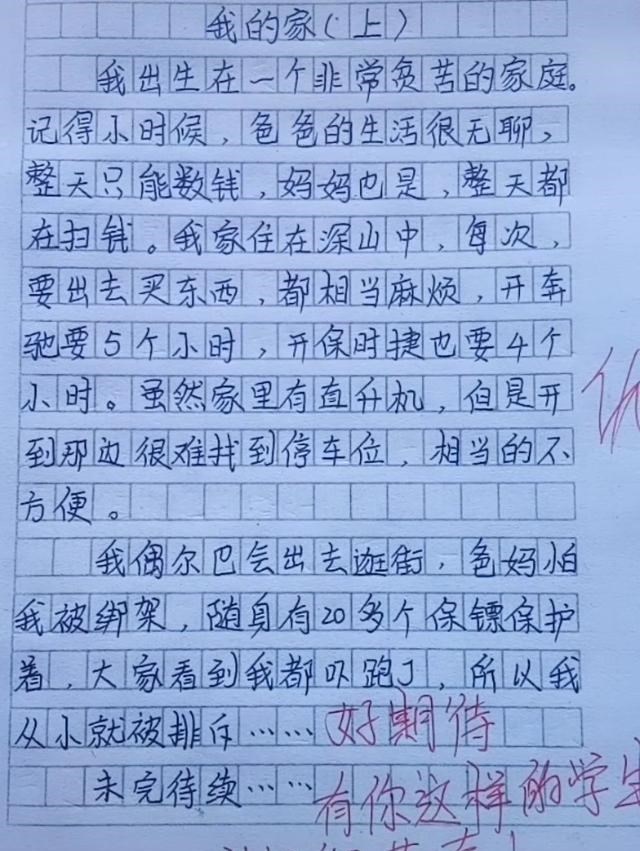 我的家（上）
我出生在一个非常贫苦的家庭。
记得小时候，爸爸的生活很无聊，
整天只能数钱，妈妈也是，整天都
在扫钱。我家住在深山中，每次，
要出去买东西，都相当麻烦，开奔
驰要5个小时，开保时捷也要4个
小时。虽然家里有直升机，但是开
到那边很难找到停车位，相当的不
方便。
我偶尔巴会出去逛街，爸妈怕
我被绑架，随身有20多个保镖保护
着，大家看到我都吓跑了，所以我
从小就被排斥……好期待
未完待续……有你这样的学生